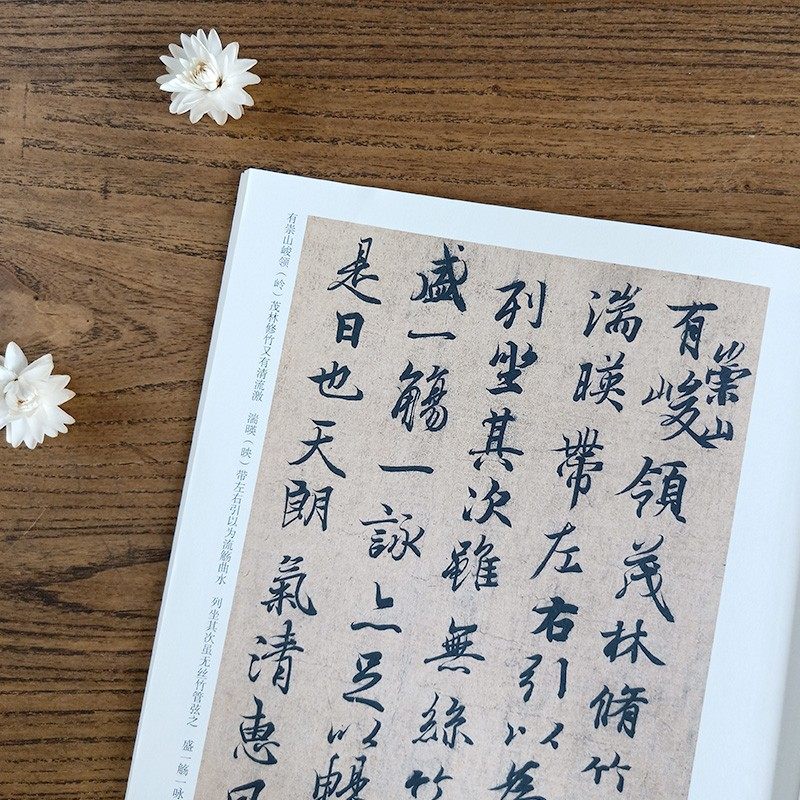 有崇山峻領茂林脩竹
湍暎帶左右引以為
列坐其次雖無絲竹
盛一觴一詠亦足以暢
是日也天朗氣清惠風
有崇山峻领（岭）茂林修竹又有清流激　湍暎（映）带左右引以为流觞曲水　列坐其次虽无丝竹管弦之　盛一觞一咏